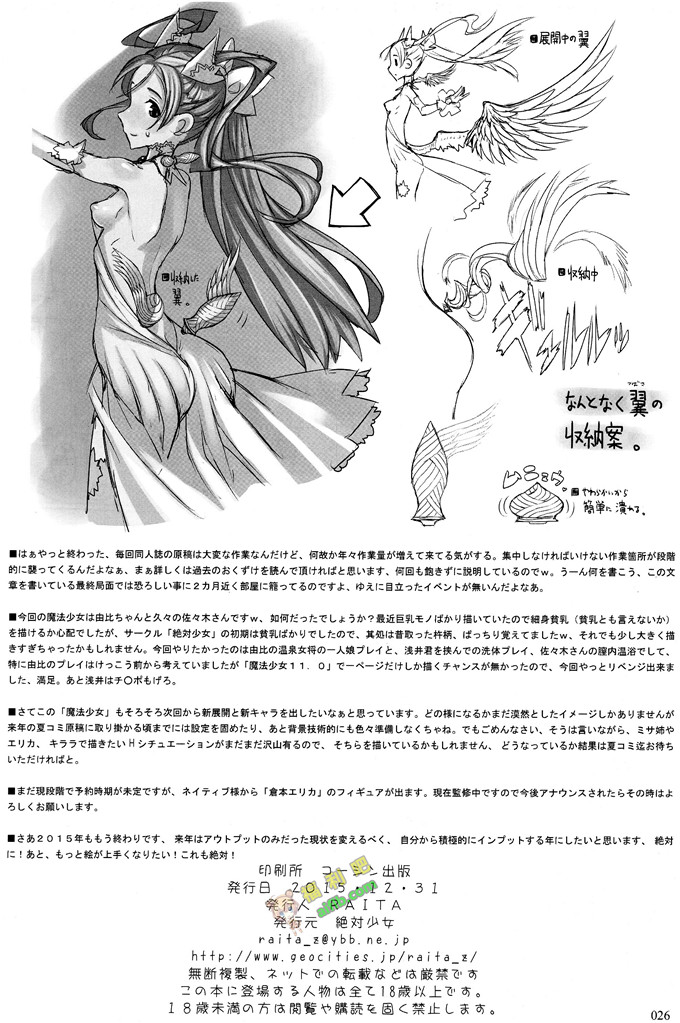 展開中の翼
収納した
翼。
収納中
ギュルルルッ
なんとなく翼の
つばさ
収納案。
ムニュゥ
やわらかいから
簡単に潰れる。
■はぁやっと終わった、毎回同人誌の原稿は大変な作業なんだけど、何故か年々作業量が増えて来てる気がする。集中しなければいけない作業箇所が段階
的に襲ってくるんだよなぁ、まぁ詳しくは過去のおくずけを読んで頂ければと思います、何回も飽きずに説明しているのでｗ。うーん何を書こう、この文
章を書いている最終局面では恐ろしい事に２カ月近く部屋に籠ってるのですよ、ゆえに目立ったイベントが無いんだよなあ。
■今回の魔法少女は由比ちゃんと久々の佐々木さんですｗ、如何だったでしょうか？最近巨乳モノばかり描いていたので細身貧乳（貧乳とも言えないか）
を描けるか心配でしたが、サークル「絶対少女」の初期は貧乳ばかりでしたので、其処は昔取った杵柄、ばっちり覚えてましたｗ、それでも少し大きく描
きすぎちゃったかもしれません。今回やりたかったのは由比の温泉女将の一人娘プレイと、浅井君を挟んでの洗体プレイ、佐々木さんの膣内温浴でして、
特に由比のプレイはけっこう前から考えていましたが「魔法少女１１．０」で一ページだけしか描くチャンスが無かったので、今回やっとリベンジ出来ま
した、満足。あと浅井はチ○ポもげろ。
■さてこの「魔法少女」もそろそろ次回から新展開と新キャラを出したいなぁと思っています。どの様になるかまだ漠然としたイメージしかありませんが
来年の夏コミ原稿に取り掛かる頃までには設定を固めたり、あと背景技術的にも色々準備しなくちゃね。でもごめんなさい、そうは言いながら、ミサ姉や
エリカ、キララで描きたいＨシチュエーションがまだまだ沢山有るので、そちらを描いているかもしれません、どうなっているか結果は夏コミ迄お待ち
いただければと。
■まだ現段階で予約時期が未定ですが、ネイティブ様から「倉本エリカ」のフィギュアが出ます。現在監修中ですので今後アナウンスされたらその時はよ
ろしくお願いします。
■さあ２０１５年ももう終わりです、来年はアウトプットのみだった現状を変えるべく、自分から積極的にインプットする年にしたいと思います、絶対
に！あと、もっと絵が上手くなりたい！これも絶対！
印刷所　コーシン出版
発行日　２０１５・１２・３１
発行人　ＲＡＩＴＡ
発行元　絶対少女
raita_z@ybb.ne.jp
http://www.geocities.jp/raita_z/
無断複製、ネットでの転載などは厳禁です
この本に登場する人物は全て18歳以上です。
１８歳未満の方は閲覧や購読を固く禁止します。
福利吧
026